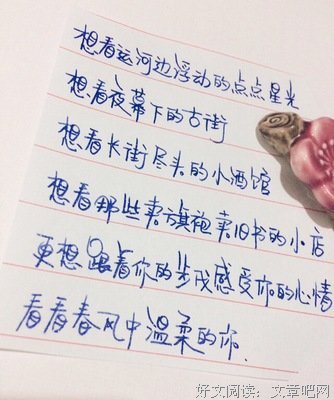 想看运河边浮动的点点星光
想看夜幕下的古街
想看长街尽头的小酒馆
想看那些卖旗袍卖旧书的小店
更想跟着你的步伐感受你的心情
看看春风中温柔的你.
好文阅读：文章吧网